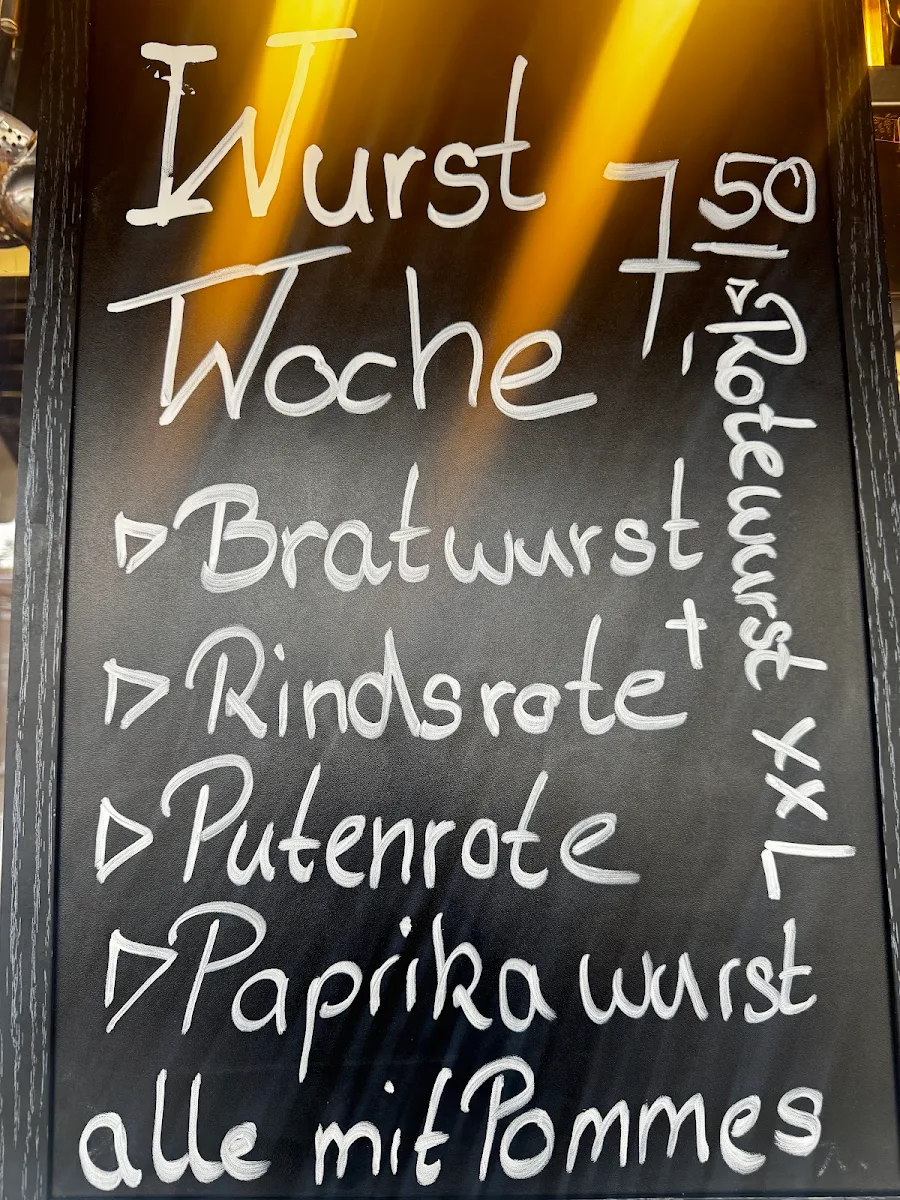 Wurst
Woche
7,50
▷ Bratwurst
▷ Rindsrote +
▷ Putenrote
▷ Paprikawurst
▷ Rotewurst XXL
alle mit Pommes